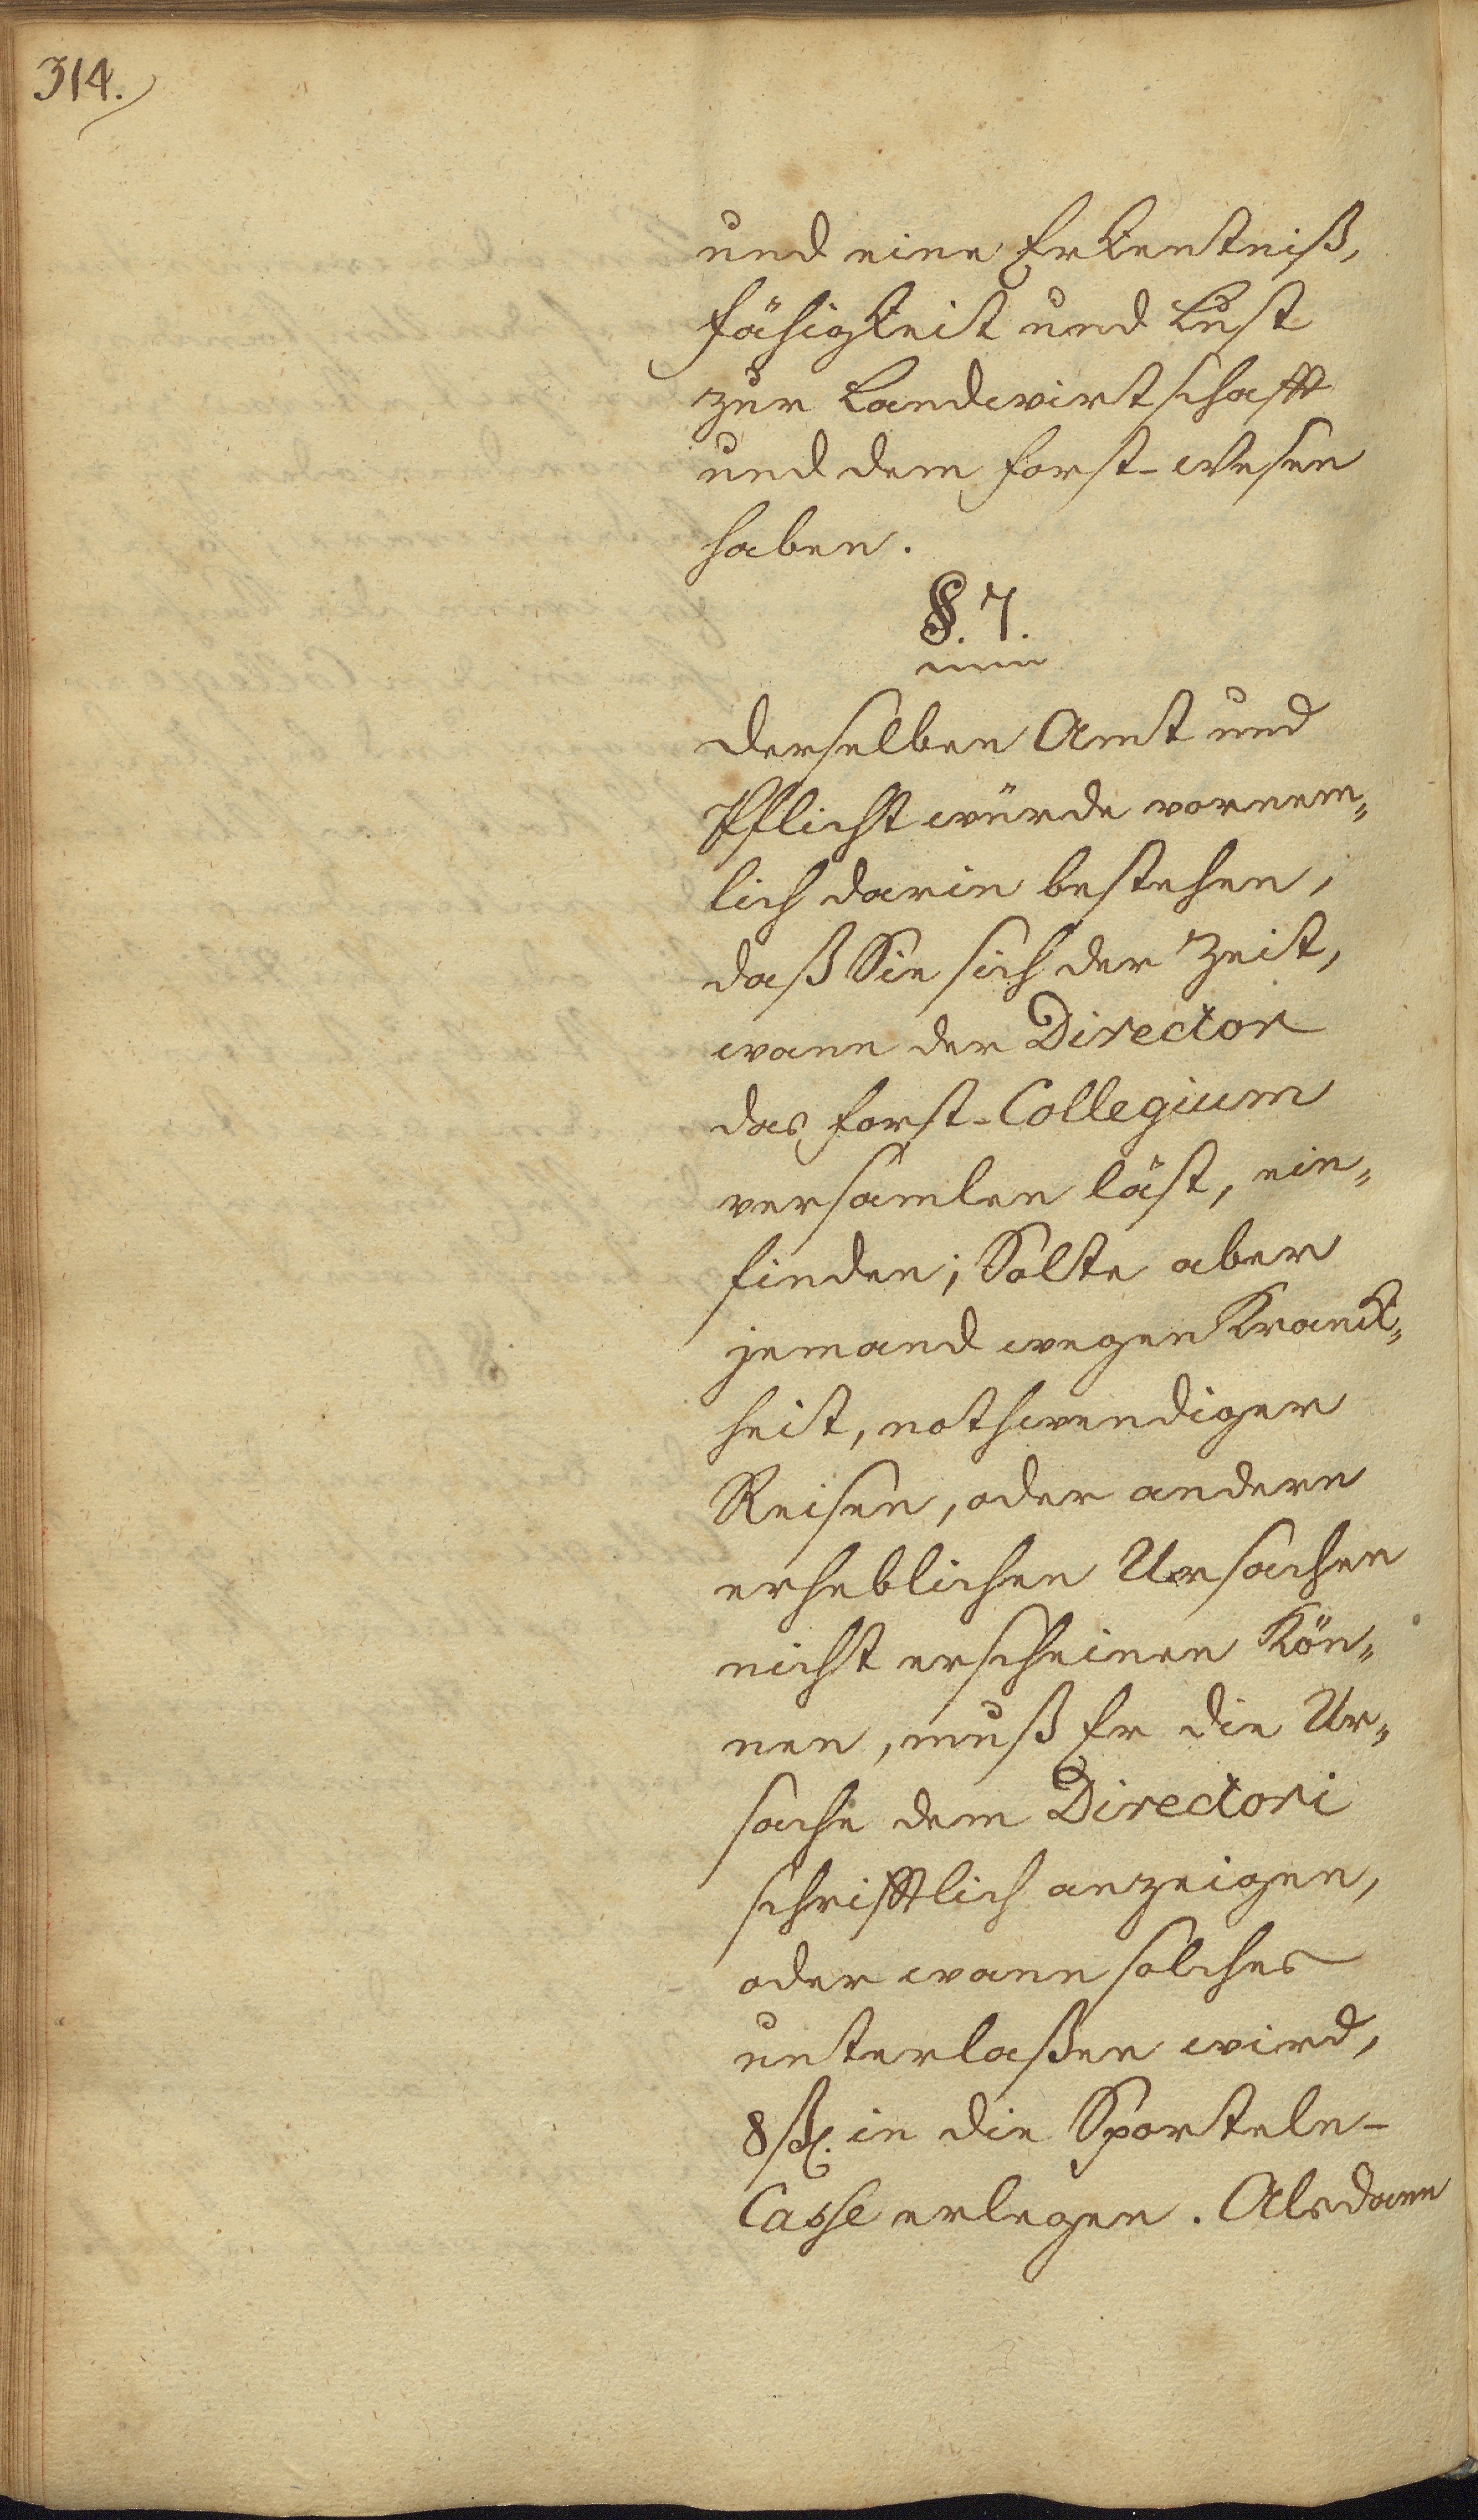 314.
und eine Erkentniß,
Fähigkeit und Lust
zur Landwirtschafft
und dem Forst-Wesen
haben.
§. 7.
Derselben Amt und
Pflicht würde vornem„
lich darin bestehen,
daß Sie sich der Zeit,
wann der Director
das Forst-Collegium
versamlen läst, ein„
finden; Solte aber
jemand wegen Kranck„
heit, nothwendiger
Reisen, oder andern
erheblichen Ursachen
nicht erscheinen kön„
nen, muß Er die Ur„
sache dem Directori
schrifftlich anzeigen,
oder wann solches
unterlaßen wird,
8 ßl. in die Sporteln-
Casse erlegen. Alsdann